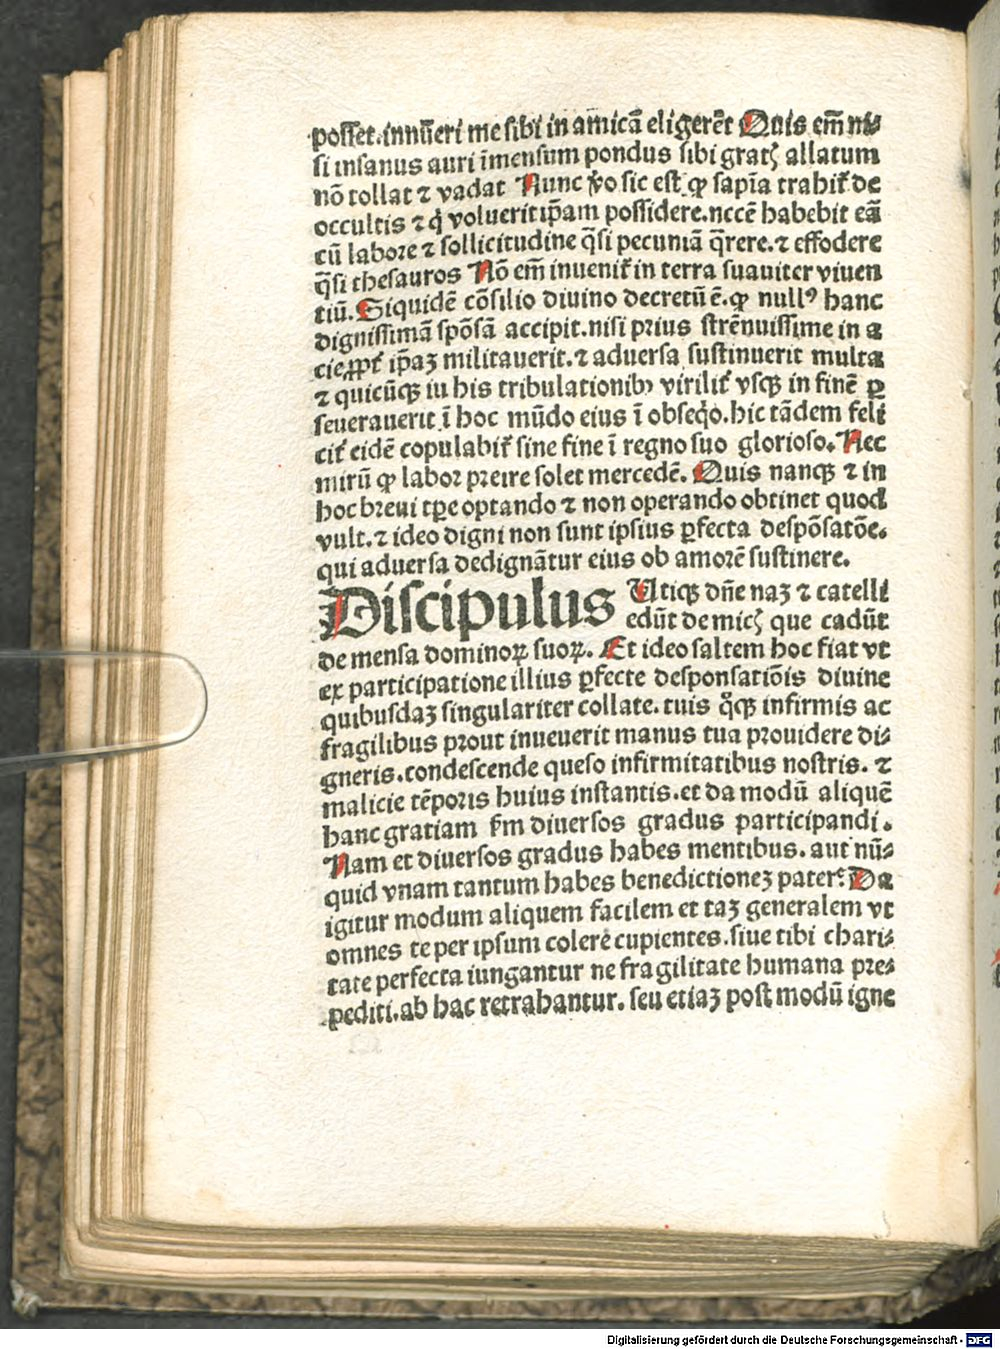 posset. innūeri me sibi in amicā eligerēt Quis em̄ ni⸗
si insanus auri īmensum pondus sibi gratꝭ allatum
nō tollat ⁊ vadat Nunc v̄o sic est ꝙ sapīa trahit᷑ de
occultis ⁊ q̇ voluerit ip̄am possidere. nccē habebit eā
cū labore ⁊ sollicitudine q̄si pecuniā q̄rere. ⁊ effodere
q̄si thesauros Nō em̄ inuenit᷑ in terra suauiter viuen
tiū. Siquidē cōsilio diuino decretū ē. ꝙ nullꝰ hanc
dignissimā spōsā accipit. nisi prius strēnuissime in a
cie ꝓpt̄ ip̄aꝫ militauerit. ⁊ aduersa sustinuerit multa
⁊ quicūqꝫ iu his tribulationibꝰ virilit᷑ vsqꝫ in finē ꝑ
seuerauerit ī hoc mūdo eius ī obseq̇o. hic tādem feli
cit᷑ eidē copulabit᷑ sine fine ī regno suo glorioso. Nec
mirū ꝙ labor preire solet mercedē. Quis nanqꝫ ⁊ in
hoc breui tꝑe optando ⁊ non operando obtinet quod
vult. ⁊ ideo digni non sunt ipsius ꝑfecta despōsatōe.
qui aduersa dedignātur eius ob amorē sustinere.
Discipulus Utiqꝫ dn̄e naꝫ ⁊ catelli
edūt de micꝭ que cadūt
de mensa dominoꝝ suoꝝ. Et ideo saltem hoc fiat vt
ex participatione illius ꝑfecte desponsatiōis diuine
quibusdaꝫ singulariter collate. tuis q̊qꝫ infirmis ac
fragilibus prout inueuerit manus tua prouidere di⸗
gneris. condescende queso infirmitatibus nostris. ⁊
malicie tēporis huius instantis. et da modū aliquē
hanc gratiam ẜm diuersos gradus participandi.
Nam et diuersos gradus habes mentibus. aut nū⸗
quid vnam tantum habes benedictioneꝫ pater? Da
igitur modum aliquem facilem et taꝫ generalem vt
omnes te per ipsum colere cupientes. siue tibi chari⸗
tate perfecta iungantur ne fragilitate humana pre⸗
pediti. ab hac retrahantur. seu etiaꝫ post modū igne
Digitalisierung gefördert durch die Deutsche Forschungsgemeinschaft - DFG